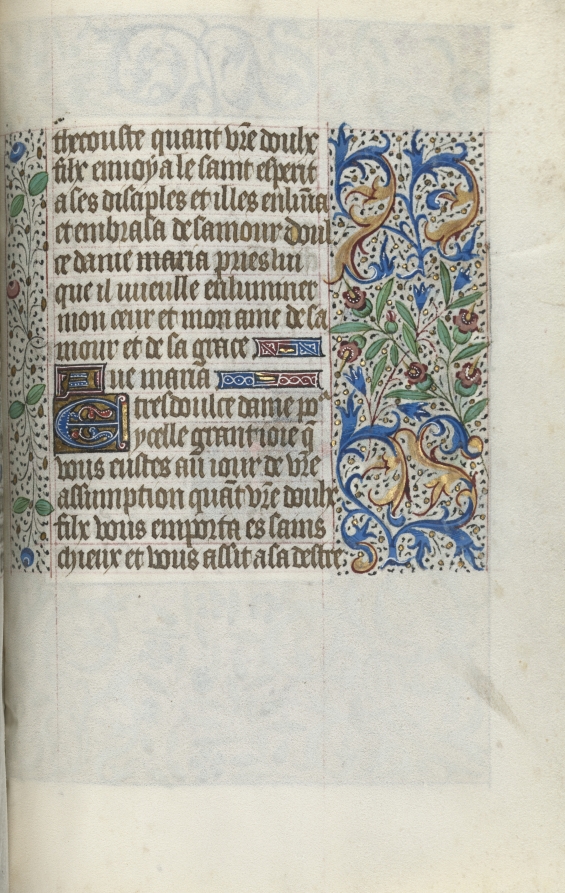 thecouste quant vr̄e doulx
filx enuoya le saint esperit
a ses disciples et illes enlūīa
et embrasa de samour doul
ce dame maria pries lui
que il vueille enluminer
mon cœur et mon ame de sa
mour et de sa grace
Aue maria
E tresdoulce dame po
ycelle grant ioie q̄
vous eustes au iour de vr̄e
assumption quāt vr̄e doulx
filx vous emporta es sains
chieux et vous assit a sa destre